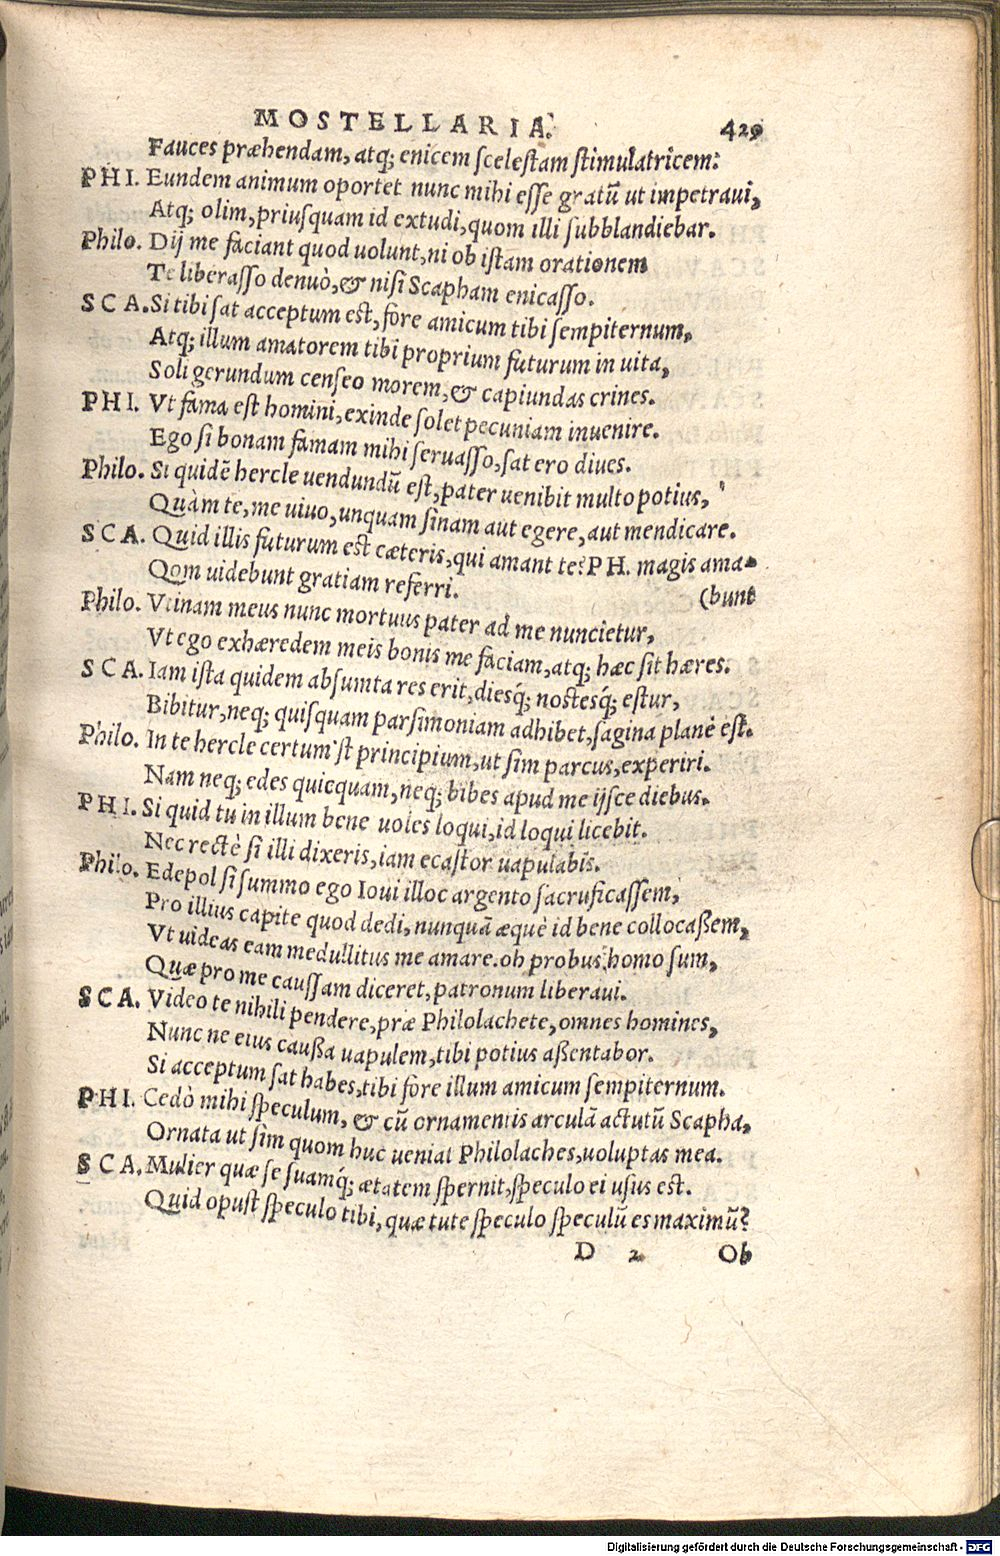 MOSTELLARIA. 429
Fauces præhendam, atq; enicem ſceleſtam ſtimulatricem:
PHI. Eundem animum oportet nunc mihi eſſe gratũ ut impetraui,
Atq; olim, priuſquam id extudi, quom illi ſubblandiebar.
Philo. Dij me faciant quod uolunt, ni ob iſtam orationem
Te liberaſſo denuò, & niſi Scapham enicaſſo.
SCA. Si tibi ſat acceptum eſt, fore amicum tibi ſempiternum,
Atq; illum amatorem tibi proprium futurum in uita,
Soli gerundum cenſeo morem, & capiundas crines.
PHI. Vt fama eſt homini, exinde ſolet pecuniam inuenire.
Ego ſi bonam famam mihi ſeruaſſo, ſat ero diues.
Philo. Si quidẽ hercle uendundũ eſt, pater uenibit multo potius,
Quàm te, me uiuo, unquam ſinam aut egere, aut mendicare.
SCA. Quid illis futurum est cæteris, qui amant te? PH. magis ama-
Qom uidebunt gratiam referri. (bunt
Philo. Vtinam meus nunc mortuus pater ad me nuncietur,
Vt ego exhæredem meis bonis me faciam, atq; hæc ſit hæres.
SCA. Iam iſta quidem abſumta res erit, diesq́; noctesq́; eſtur,
Bibitur, neq; quiſquam parſimoniam adhibet, ſagina planè eſt.
Philo. In te hercle certum'ſt principium, ut ſim parcus, experiri.
Nam neq; edes quicquam, neq; bibes apud me ijſce diebus.
PHI. Si quid tu in illum bene uoles loqui, id loqui licebit.
Nec rectè ſi illi dixeris, iam ecaſtor uapulabis.
Philo. Edepol ſi ſummo ego Ioui illoc argento ſacruficaſſem,
Pro illius capite quod dedi, nunquã æquè id bene collocaßem,
Vt uideas eam medullitus me amare. oh probus homo ſum,
Quæ pro me cauſſam diceret, patronum liberaui.
SCA. Video te nihili pendere, præ Philolachete, omnes homines,
Nunc ne eius caußa uapulem, tibi potius aßentabor.
Si acceptum ſat habes, tibi fore illum amicum ſempiternum.
PHI. Cedò mihi ſpeculum, & cũ ornamentis arculã actutũ Scapha,
Ornata ut ſim quom huc ueniat Philolaches, uoluptas mea.
SCA. Mulier quæ ſe ſuamq́; ætatem ſpernit, ſpeculo ei uſus est.
Quid opuſt ſpeculo tibi, quæ tute ſpeculo ſpeculũ es maximũ?
D 2 Ob
Digitalisierung gefördert durch die Deutsche Forschungsgemeinschaft - DFG